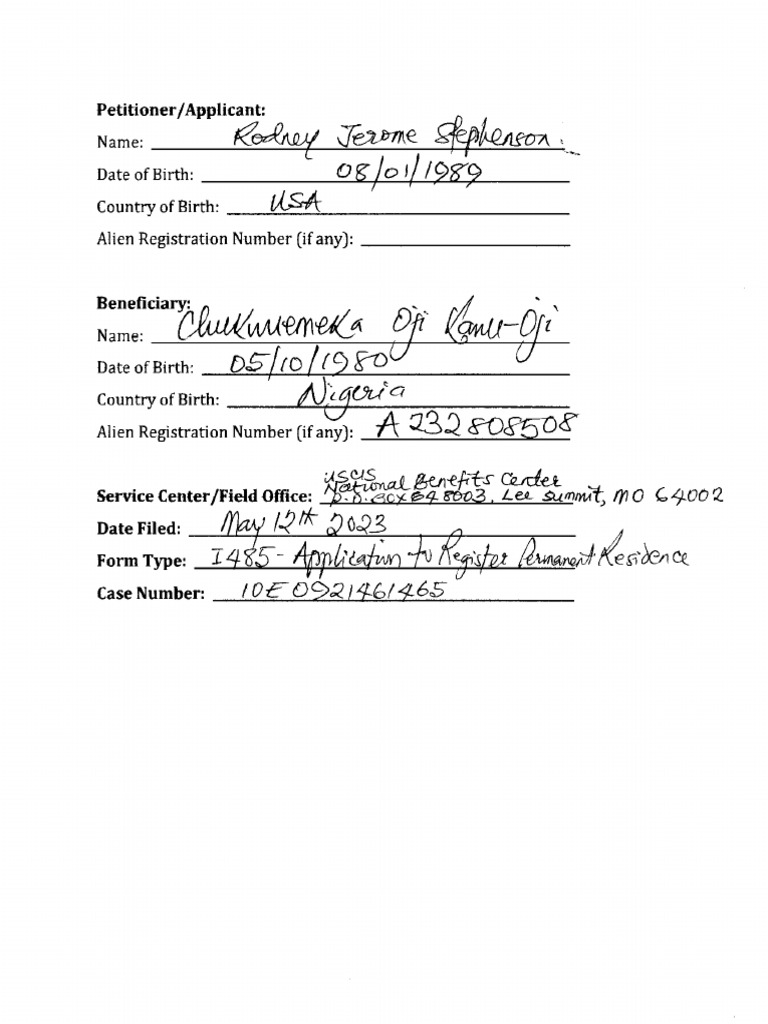 Petitioner/Applicant:
Name: Rodney Jerome Stephenson.
Date of Birth: 08/01/1989
Country of Birth: USA
Alien Registration Number (if any):
Beneficiary:
Name: Chukwuemeka Oji Kanu-Oji
Date of Birth: 05/10/1980
Country of Birth: Nigeria
Alien Registration Number (if any): A 232808508
USCIS
National Benefits Center
Service Center/Field Office: P.O. BOX 648003, Lee Summit, MO 64002
Date Filed: May 12th 2023
Form Type: I485 - Application to Register Permanent Residence
Case Number: IOE0921461465